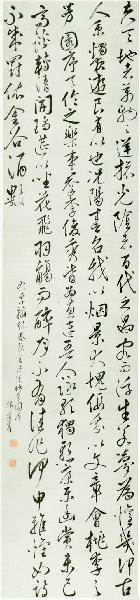 夫天地者萬物逆旅光陰者百代之過客而浮生若夢為懽幾何古
人秉燭夜遊良有以也況陽春召我以烟景大塊假我以文章會桃李之
芳園序天倫之樂事羣季俊秀皆為惠連吾人詠歌獨慚康樂幽賞未已
高談轉清開瓊筵以坐花飛羽觴而醉月不有佳作何伸雅懷如詩
不成罰依金谷酒數